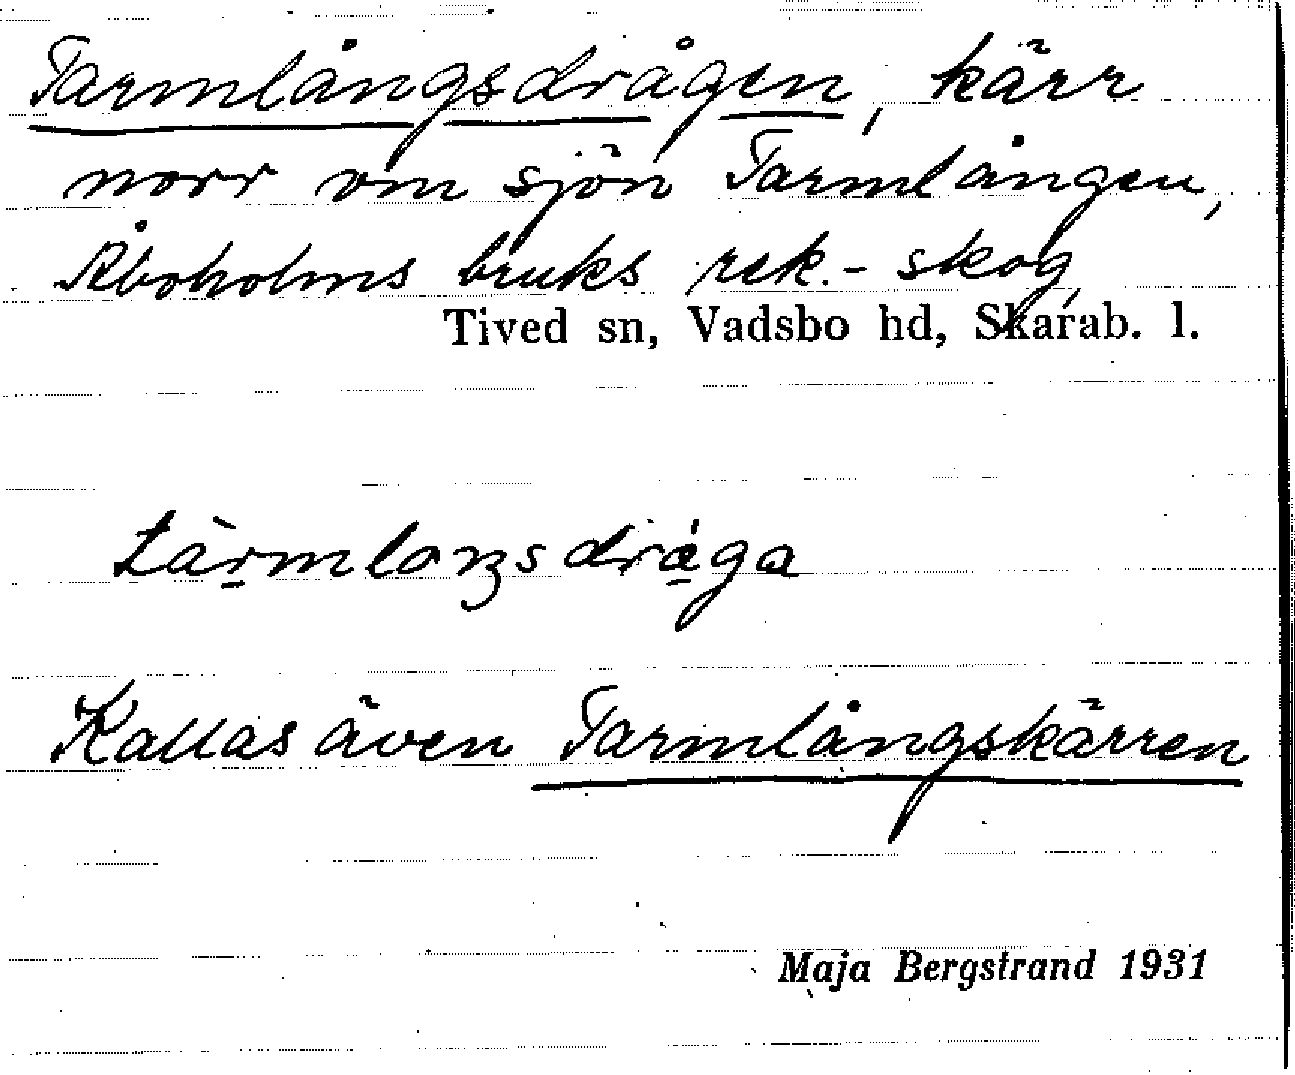 Tarmlångsdrågen, kärr
norr om sjön Tarmlången,
Åboholms bruks rek.-skog,
Tived sn, Vadsbo hd, Skarab. l.
tàrmlaŋsdrága
Kallas även Tarmlångskärren
Maja Bergstrand 1931